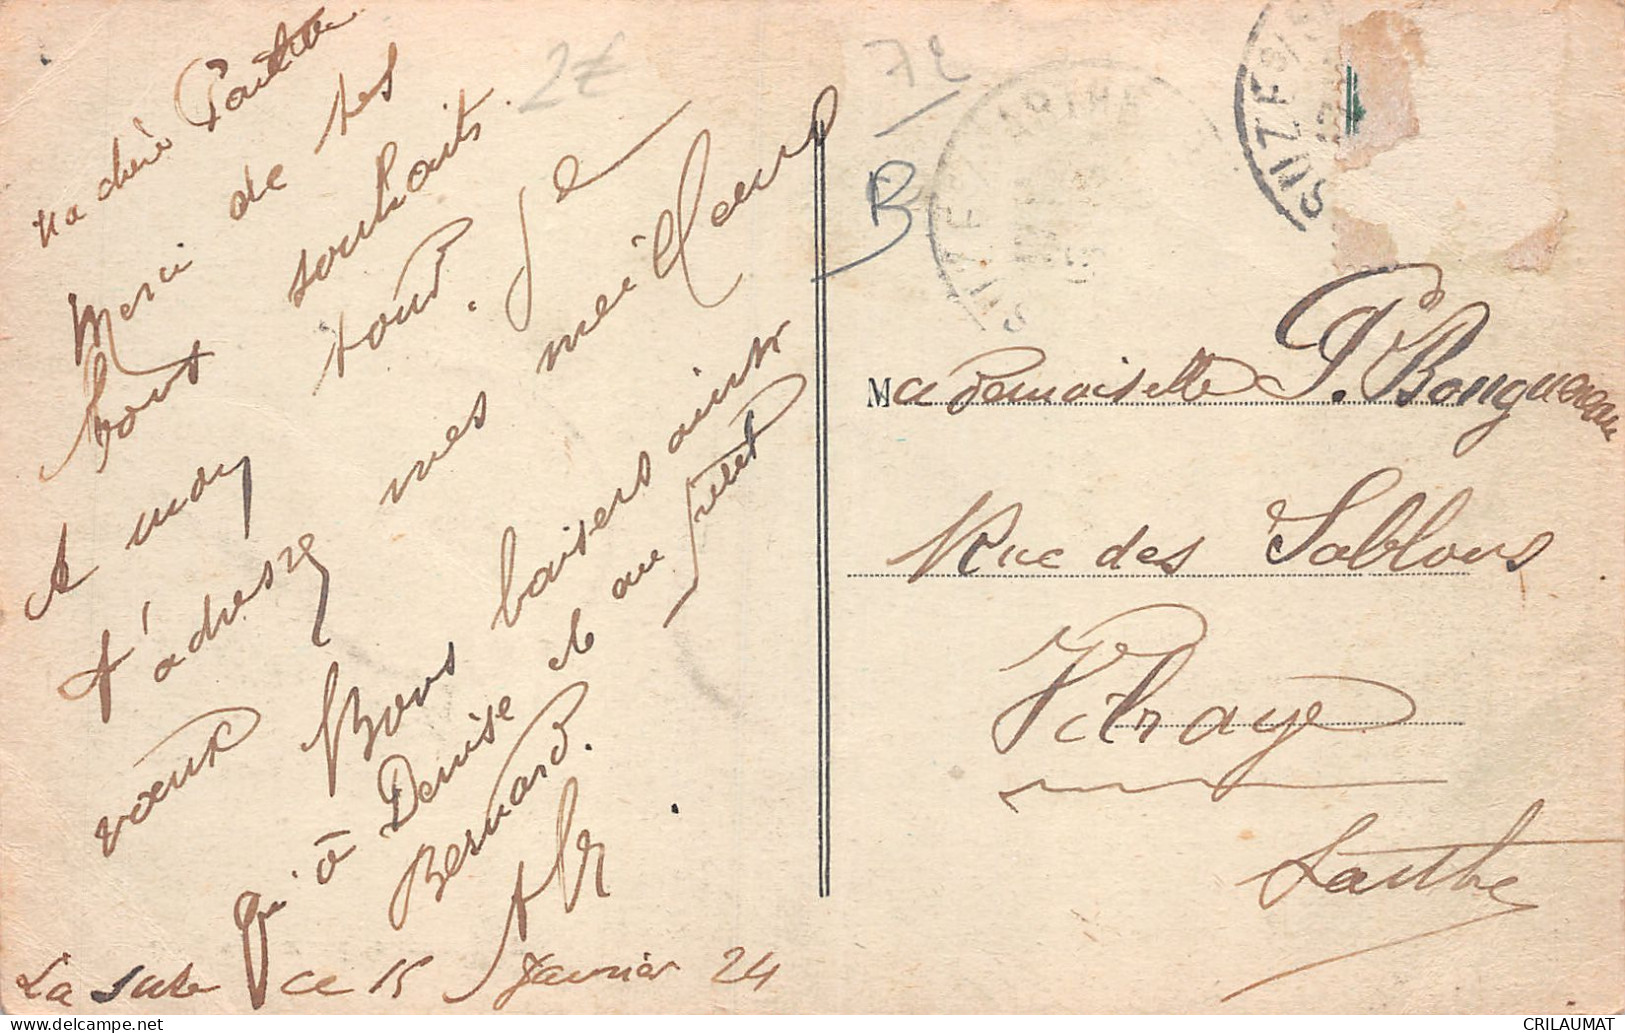 Ma chère Paulette
Merci de tes
bons souhaits.
A mon tour. Je
t'adresse mes meilleurs
voeux Bons baisers ainsi
qu'à Denise et au petit
Bernard.
La Suze ce 15 Janvier 24
2€
7E
B
SUZE S/S
SUZE S/ SARTHE
Mademoiselle P. Bougnereau
Rue des Sablons
Vibraye
Sarthe
CRILAUMAT